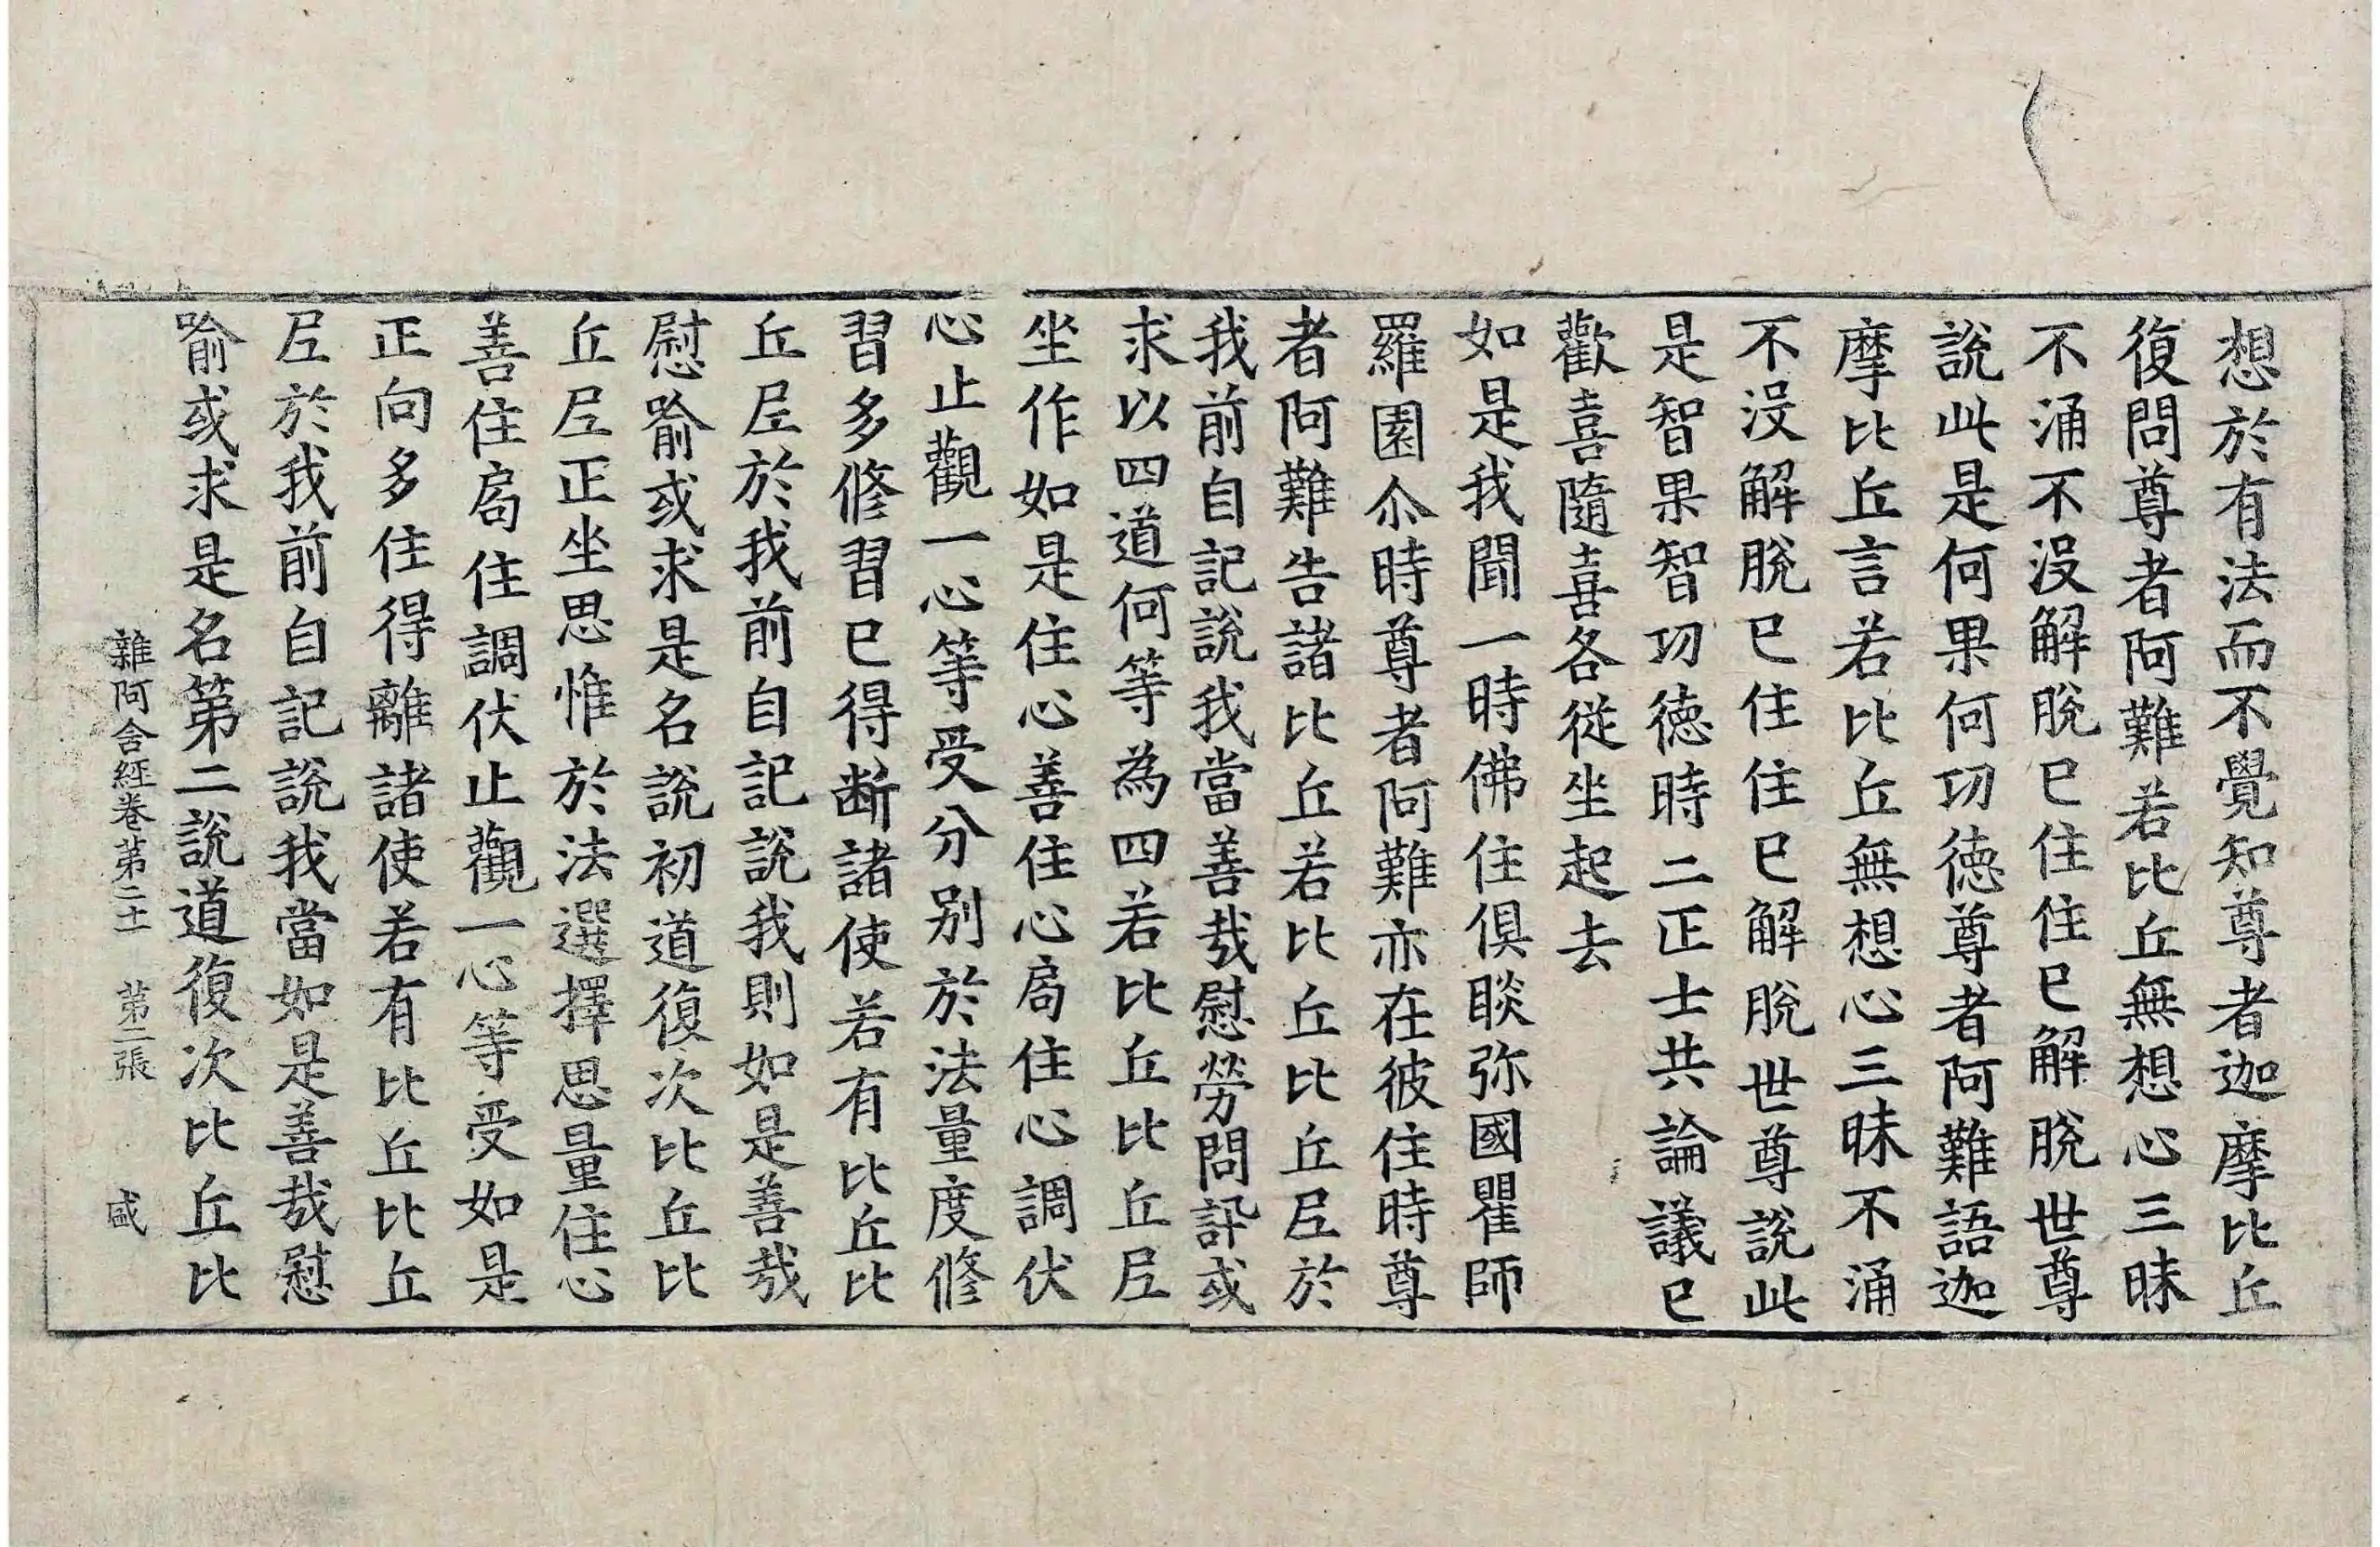 想於有法而不覺知尊者迦摩比丘
復問尊者阿難若比丘無想心三昧
不涌不没解脫已住住已解脫世尊
說此是何果何功德尊者阿難語迦
摩比丘言若比丘無想心三昧不涌
不没解脫已住住已解脫世尊說此
是智果智功德時二正士共論議已
歡喜隨喜各從坐起去
如是我聞一時佛住俱睒弥國瞿師
羅園尒時尊者阿難亦在彼住時尊
者阿難告諸比丘若比丘比丘𡰱於
我前自記說我當善哉慰勞問訊或
求以四道何等為四若比丘比丘𡰱
坐作如是住心善住心局住心調伏
心止觀一心等受分别於法量度修
習多修習已得断諸使若有比丘比
丘𡰱於我前自記說我則如是善哉
慰喻或求是名說初道復次比丘比
丘𡰱正坐思惟於法選擇思量住心
善住局住調伏止觀一心等受如是
正向多住得離諸使若有比丘比丘
𡰱於我前自記說我當如是善哉慰
喻或求是名第二說道復次比丘比
雜阿含經卷第二十一 第二張 盛